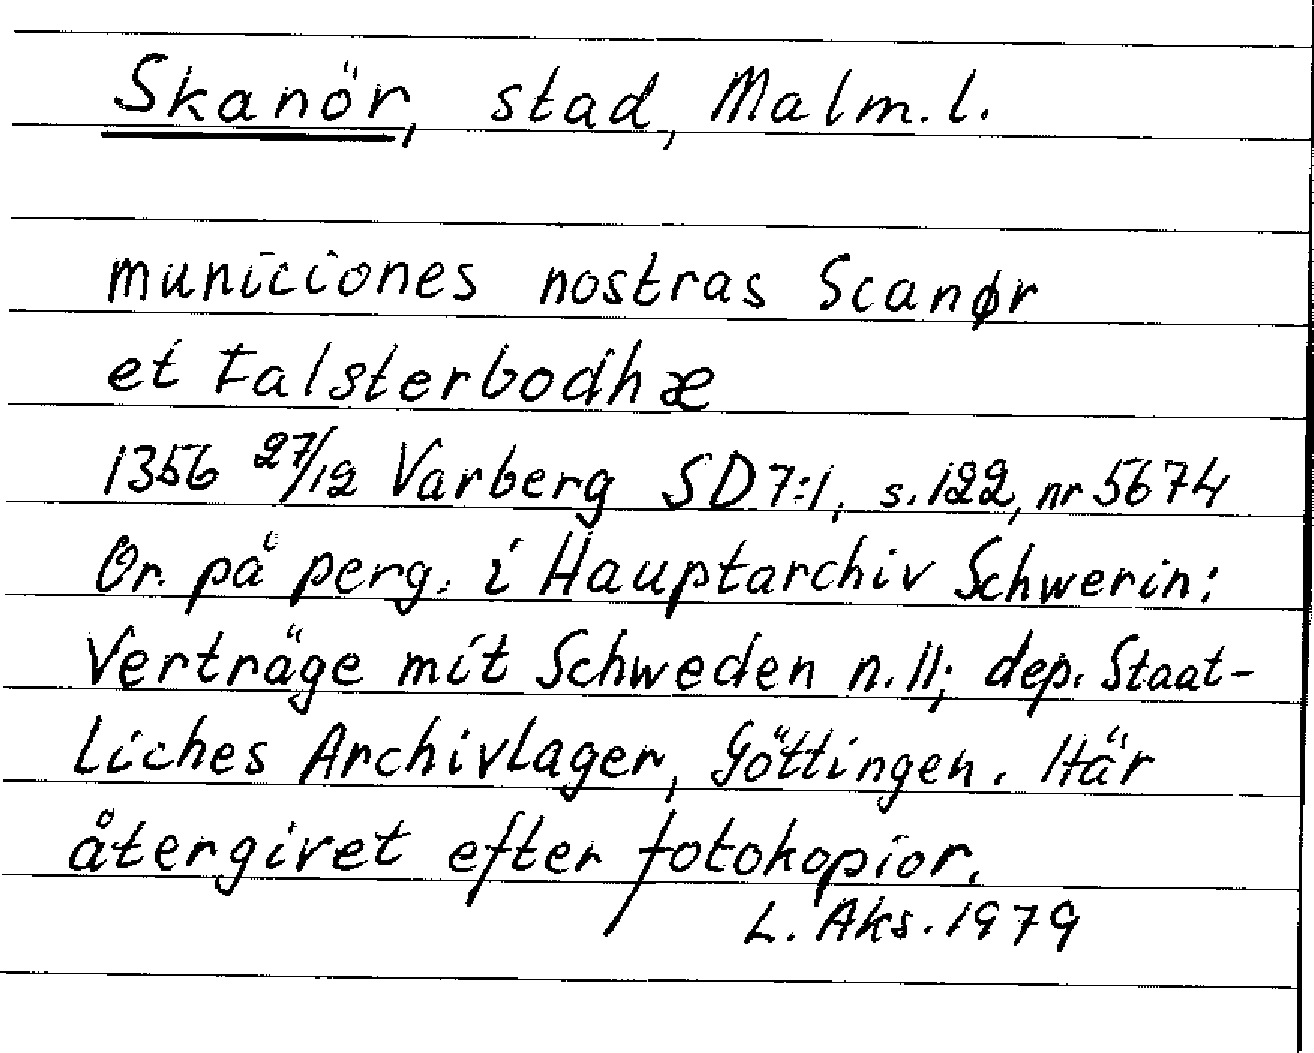 Skanör, stad, Malm. l.
municiones nostras Scanør
et Falsterbodhæ
1356 27/12 Varberg SD 7:1, s. 122, nr 5674
Or. på perg. i Hauptarchiv Schwerin:
Verträge mit Schweden n. 11; dep. Staat-
liches Archivlager, Göttingen. Här
återgivet efter fotokopior.
L. Aks. 1979